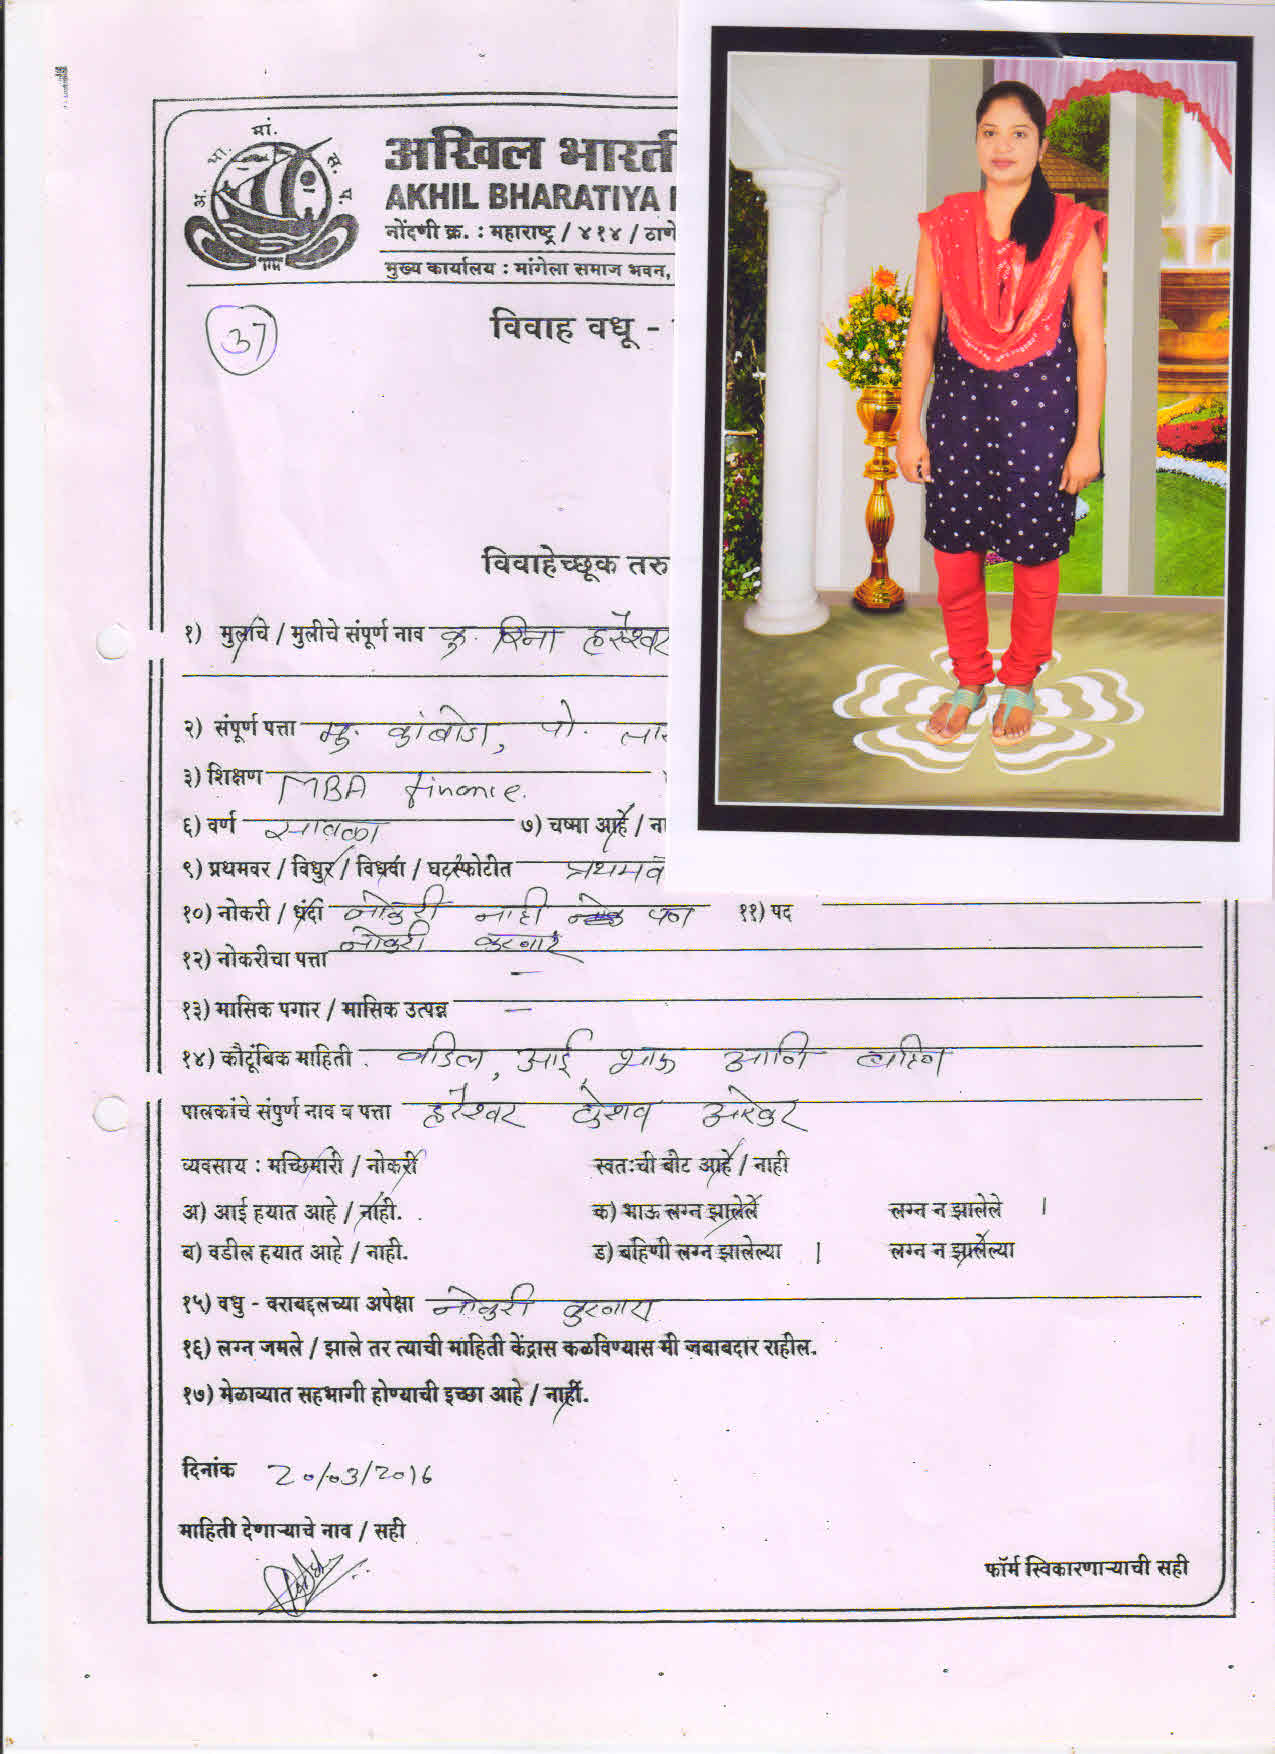 अ. भा. मां. स. प.
अखिल भारती
AKHIL BHARATIYA
नोंदणी क्र. : महाराष्ट्र / ४१४ / ठाणे
मुख्य कार्यालय : मांगेला समाज भवन,
37
विवाह वधू -
विवाहेच्छूक तरु
१) मुलाचे / मुलीचे संपूर्ण नाव कु. रिना हरेश्वर
२) संपूर्ण पत्ता मु. कांबोडा, पो. ता
३) शिक्षण MBA finance.
६) वर्ण सावळा ७) चष्मा आहे / ना
९) प्रथमवर / विधुर / विधवा / घटस्फोटीत प्रथमव
१०) नोकरी / धंदा नोकरी नाही पण ११) पद
नोकरी करणार
१२) नोकरीचा पत्ता –
१३) मासिक पगार / मासिक उत्पन्न –
१४) कौटूंबिक माहिती . वडिल, आई, भाऊ आणि बहिण
पालकांचे संपुर्ण नाव व पत्ता हरेश्वर केशव आरेकर
व्यवसाय : मच्छिमारी / नोकरी स्वतःची बोट आहे / नाही
अ) आई हयात आहे / नाही. क) भाऊ लग्न झालेले लग्न न झालेले ।
ब) वडील हयात आहे / नाही. ड) बहिणी लग्न झालेल्या । लग्न न झालेल्या
१५) वधु - वराबद्दलच्या अपेक्षा नोकरी करणारा
१६) लग्न जमले / झाले तर त्याची माहिती केंद्रास कळविण्यास मी जबाबदार राहील.
१७) मेळाव्यात सहभागी होण्याची इच्छा आहे / नाही.
दिनांक 20/03/2016
माहिती देणाऱ्याचे नाव / सही
फॉर्म स्विकारणाऱ्याची सही